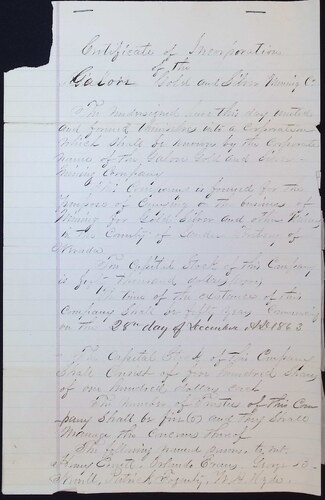 Certificate of Incorporation
of the
Galon Gold and Silver Mining Co
The undersigned have this day united
and formed themselves into a Corporation
Which shall be known by the Corporate
name of the Galon Gold and Silver
Mining Company
This Company is formed for the
purpose of Carrying on the business of
Mining for Gold Silver and other
in the County of Lander Territory of
Nevada
The Capital Stock of this Company
is fifty thousand dollars
The time of the existence of this
Company shall be fifty years Commencing
on the 28th day of December AD 1863
The Capital Stock of this Company
shall Consist of five hundred Shares
of one hundred dollars each
The number of Trustees of this Com
pany shall be five (5) and they shall
Manage the Concerns thereof
The following named persons to wit
Orlando Evans, George
Patrick Fogarty, W. H.